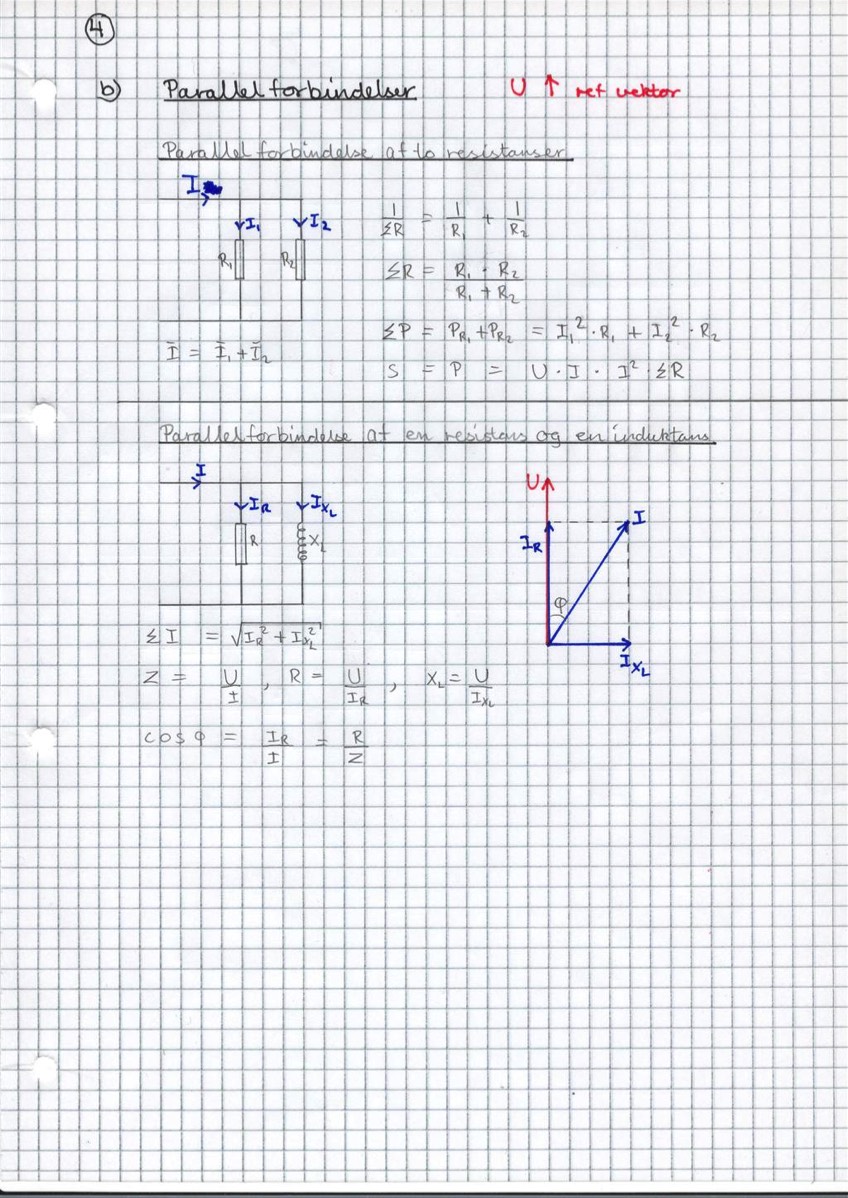 4
b) Parallelforbindelser U ↑ ref vektor
Parallelforbindelse af to resistanser
I
I₁ I₂
R₁ R₂
Ī = Ī₁ + Ī₂
1/ΣR = 1/R₁ + 1/R₂
ΣR = R₁ · R₂ / R₁ + R₂
ΣP = P_R₁ + P_R₂ = I₁² · R₁ + I₂² · R₂
S = P = U · I · I² · ΣR
Parallelforbindelse af en resistans og en induktans
I
I_R I_X_L
R X_L
U
I_R I
φ
I_X_L
ΣI = √I_R² + I_X_L²
Z = U/I , R = U/I_R , X_L = U/I_X_L
cos φ = I_R/I = R/Z